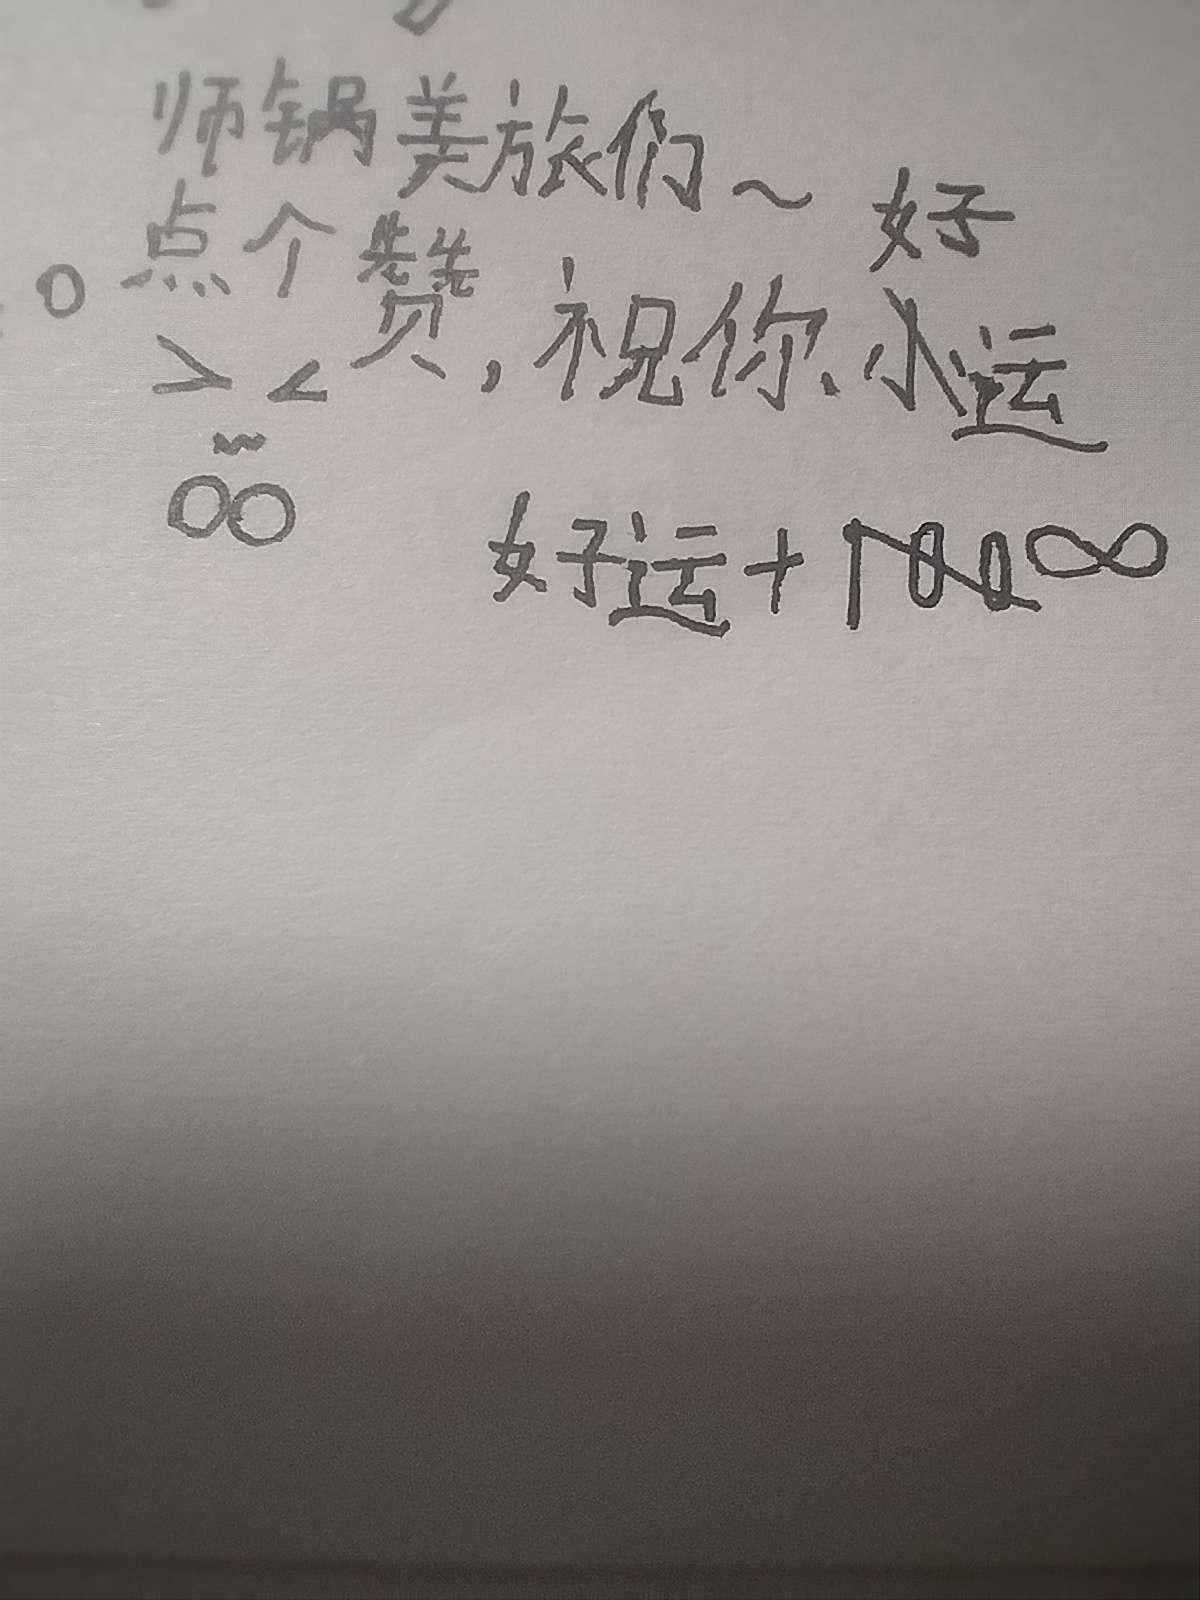 师锅美旅们~
点个赞，祝你、小运
好
好运+100∞